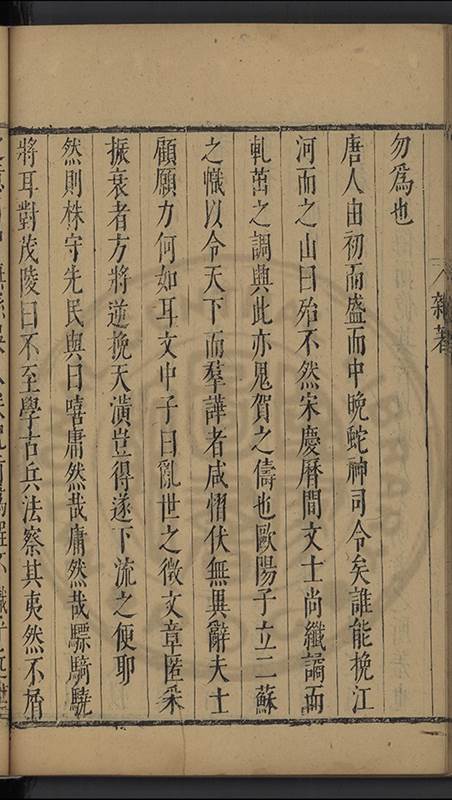 雜著
勿爲也
唐人由初而盛而中晚蛇神司令矣誰能挽江
河而之山曰殆不然宋慶曆間文士尚纖譎而
軋茁之調與此亦鬼賀之儔也歐陽子立二蘇
之幟以令天下而羣譁者咸慴伏無異辭夫士
顧願力何如耳文中子曰亂世之徵文章匿采
振衰者方將逆挽天潢豈得遂下流之便耶
然則株守先民與曰嘻庸然哉庸然哉驃騎驍
將耳對茂陵曰不至學古兵法察其夷然不屑